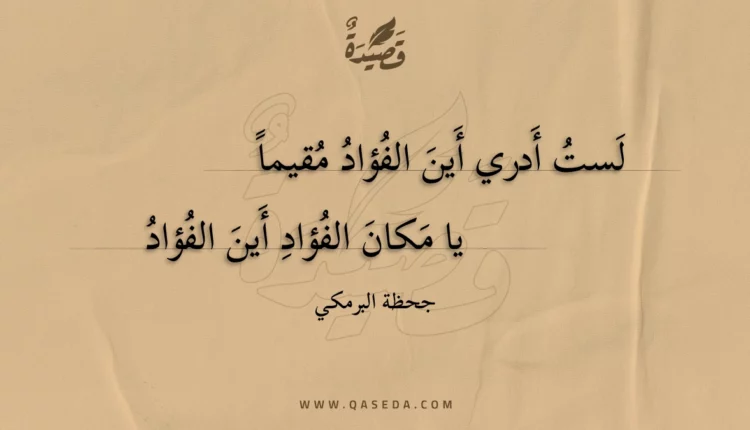 قَصِيدَةٌ
لَستُ أَدري أَينَ الفُؤادُ مُقيماً
يا مَكانَ الفُؤادِ أَينَ الفُؤادُ
جحظة البرمكي
WWW.QASEDA.COM